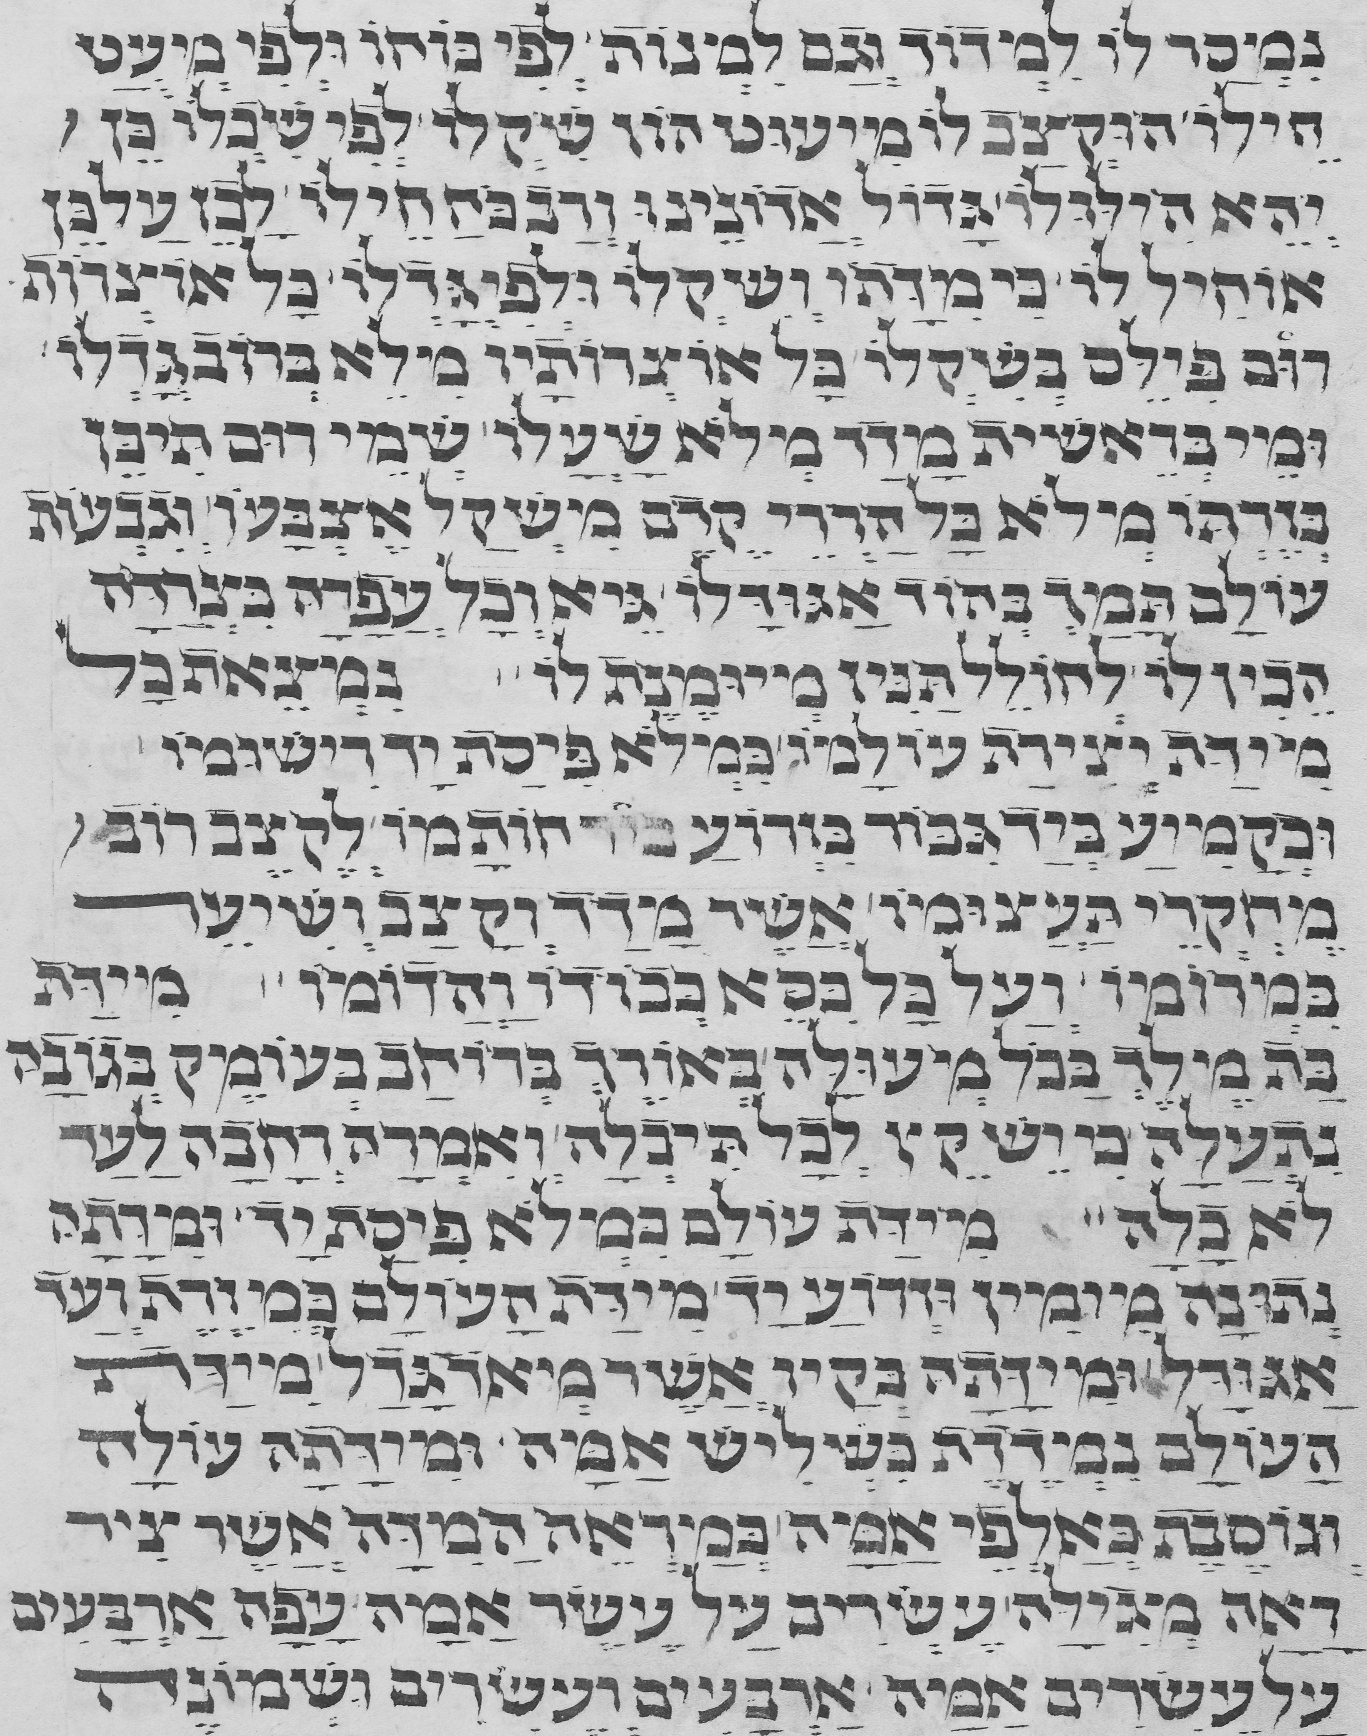 נמסר לו למדוד וגם למנות לפי כוחו ולפי מעט
חילו הוקצב לו מיעוט הון שקלו לפי שכלו כן
יהא הילולו גדול אדונינו ורב כח חילו לכן על כן
אוחיל לו כי מדתו ושקלו ולפי גדלו כל אוצרות
רום פילס בשקלו כל אוצרותיו מילא ברוב גדלו
ומי בראשית מדד מלא שעלו שמי רום תיכן
בזרתו מילא כל הררי קדם משקל אצבעו וגבעות
עולם תמך בהוד אגודלו גיא וכל עפרה כצרדה
הכין לו לחולל תכין מיומנת לו נמצאת כל
מידת יצירת עולמו כמלא פיסת יד רישומו
ובקמיע ביד גבור בזרוע חותמו לקצב רוב
מחקרי תעצומו אשר מדד וקצב ושיער
במרומיו ועל כל כסא כבודו והדומו מידת
בת מלך בכל מעולה באורך ברוחב בעומק בגובה
נתעלה כי יש קץ לכל תיכלה ואמרה רחבה לעד
לא כלה מידת עולם כמלא פיסת יד ומדתה
נתונה מימין וזרוע יד מידת העולם כמזרת ועד
אגודל ומידתה בקיו אשר מאד גדל מידת
העולם נמדדת כשליש אמה ומידתה עולה
ונוססת באלפי אמה במראה המדה אשר ציר
ראה מגילה עשרים על עשר אמה עפה ארבעים
על עשרים אמה ארבעים ועשרים ושמונה